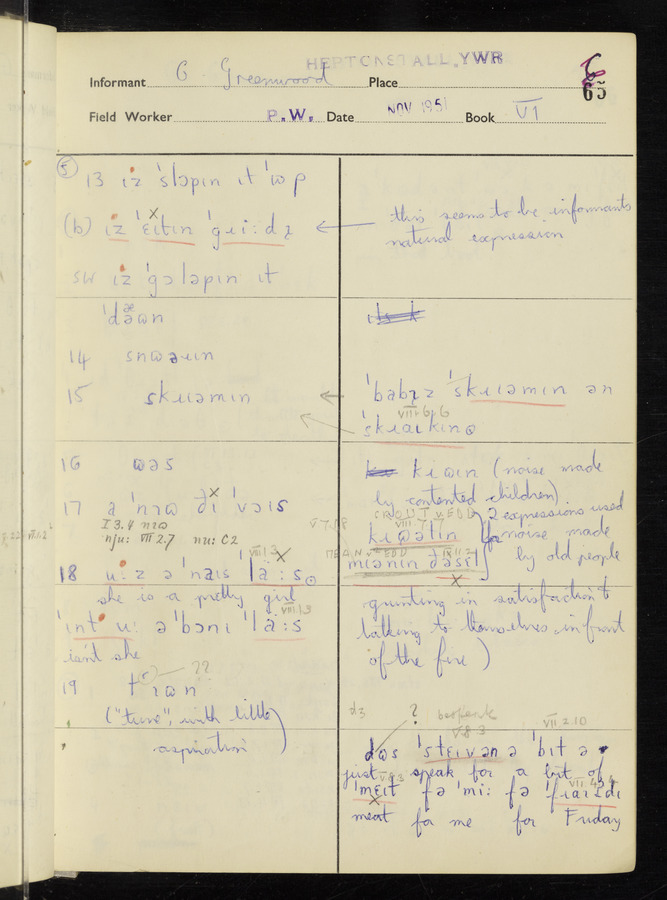 HEPTONSTALL, YWR
Informant G. Greenwood Place
6
65
Field Worker P.W. Date NOV 1951 Book VI
5
13 ɪz ˈsləpɪn ɪt ˈʊp
(b) ɪz ˈɛɪtɪn ˈgɹiːdɪ
this seems to be informants
natural expression
SW ɪz ˈgɔləpɪn ɪt
ˈdæʊn
14 snʊəɹɪn
15 skɹɪəmɪn
ˈbabɪz ˈskɹɪəmɪn ən
VII.6.6
ˈskɹaɪkɪnɡ
16 ʊəs
kɪʊɪn (noise made
by contented children)
17 a ˈnɪʊ ðɪ ˈvɔɪs
I 3.4 nɪʊ
nju: VII 2.7 nu: C2
2 expressions used
for noise made
by old people
grunting in satisfaction &
talking to themselves in front
of the fire)
VIII.1.3
18 uːz ə ˈnaɪs ˈlaːs
she is a pretty girl
VIII.1.3
ˈɪnt uː ə ˈbɔnɪ ˈlaːs
isn't she
19 tʳɪʊn
??
("tune", with little
aspiration)
dʒ ? bespeak VII 2.10
V.8.3
dʊs ˈstɛɪvən ə ˈbɪt ə
just speak for a bit of
ˈmɛɪt fə ˈmiː fə ˈfɹaɪdɪ
meat for me for Friday